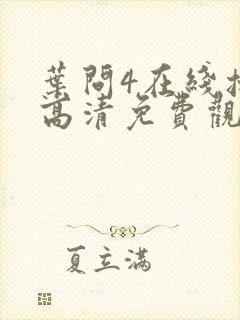 葉問4在綫
高清免費觀
夏立滿